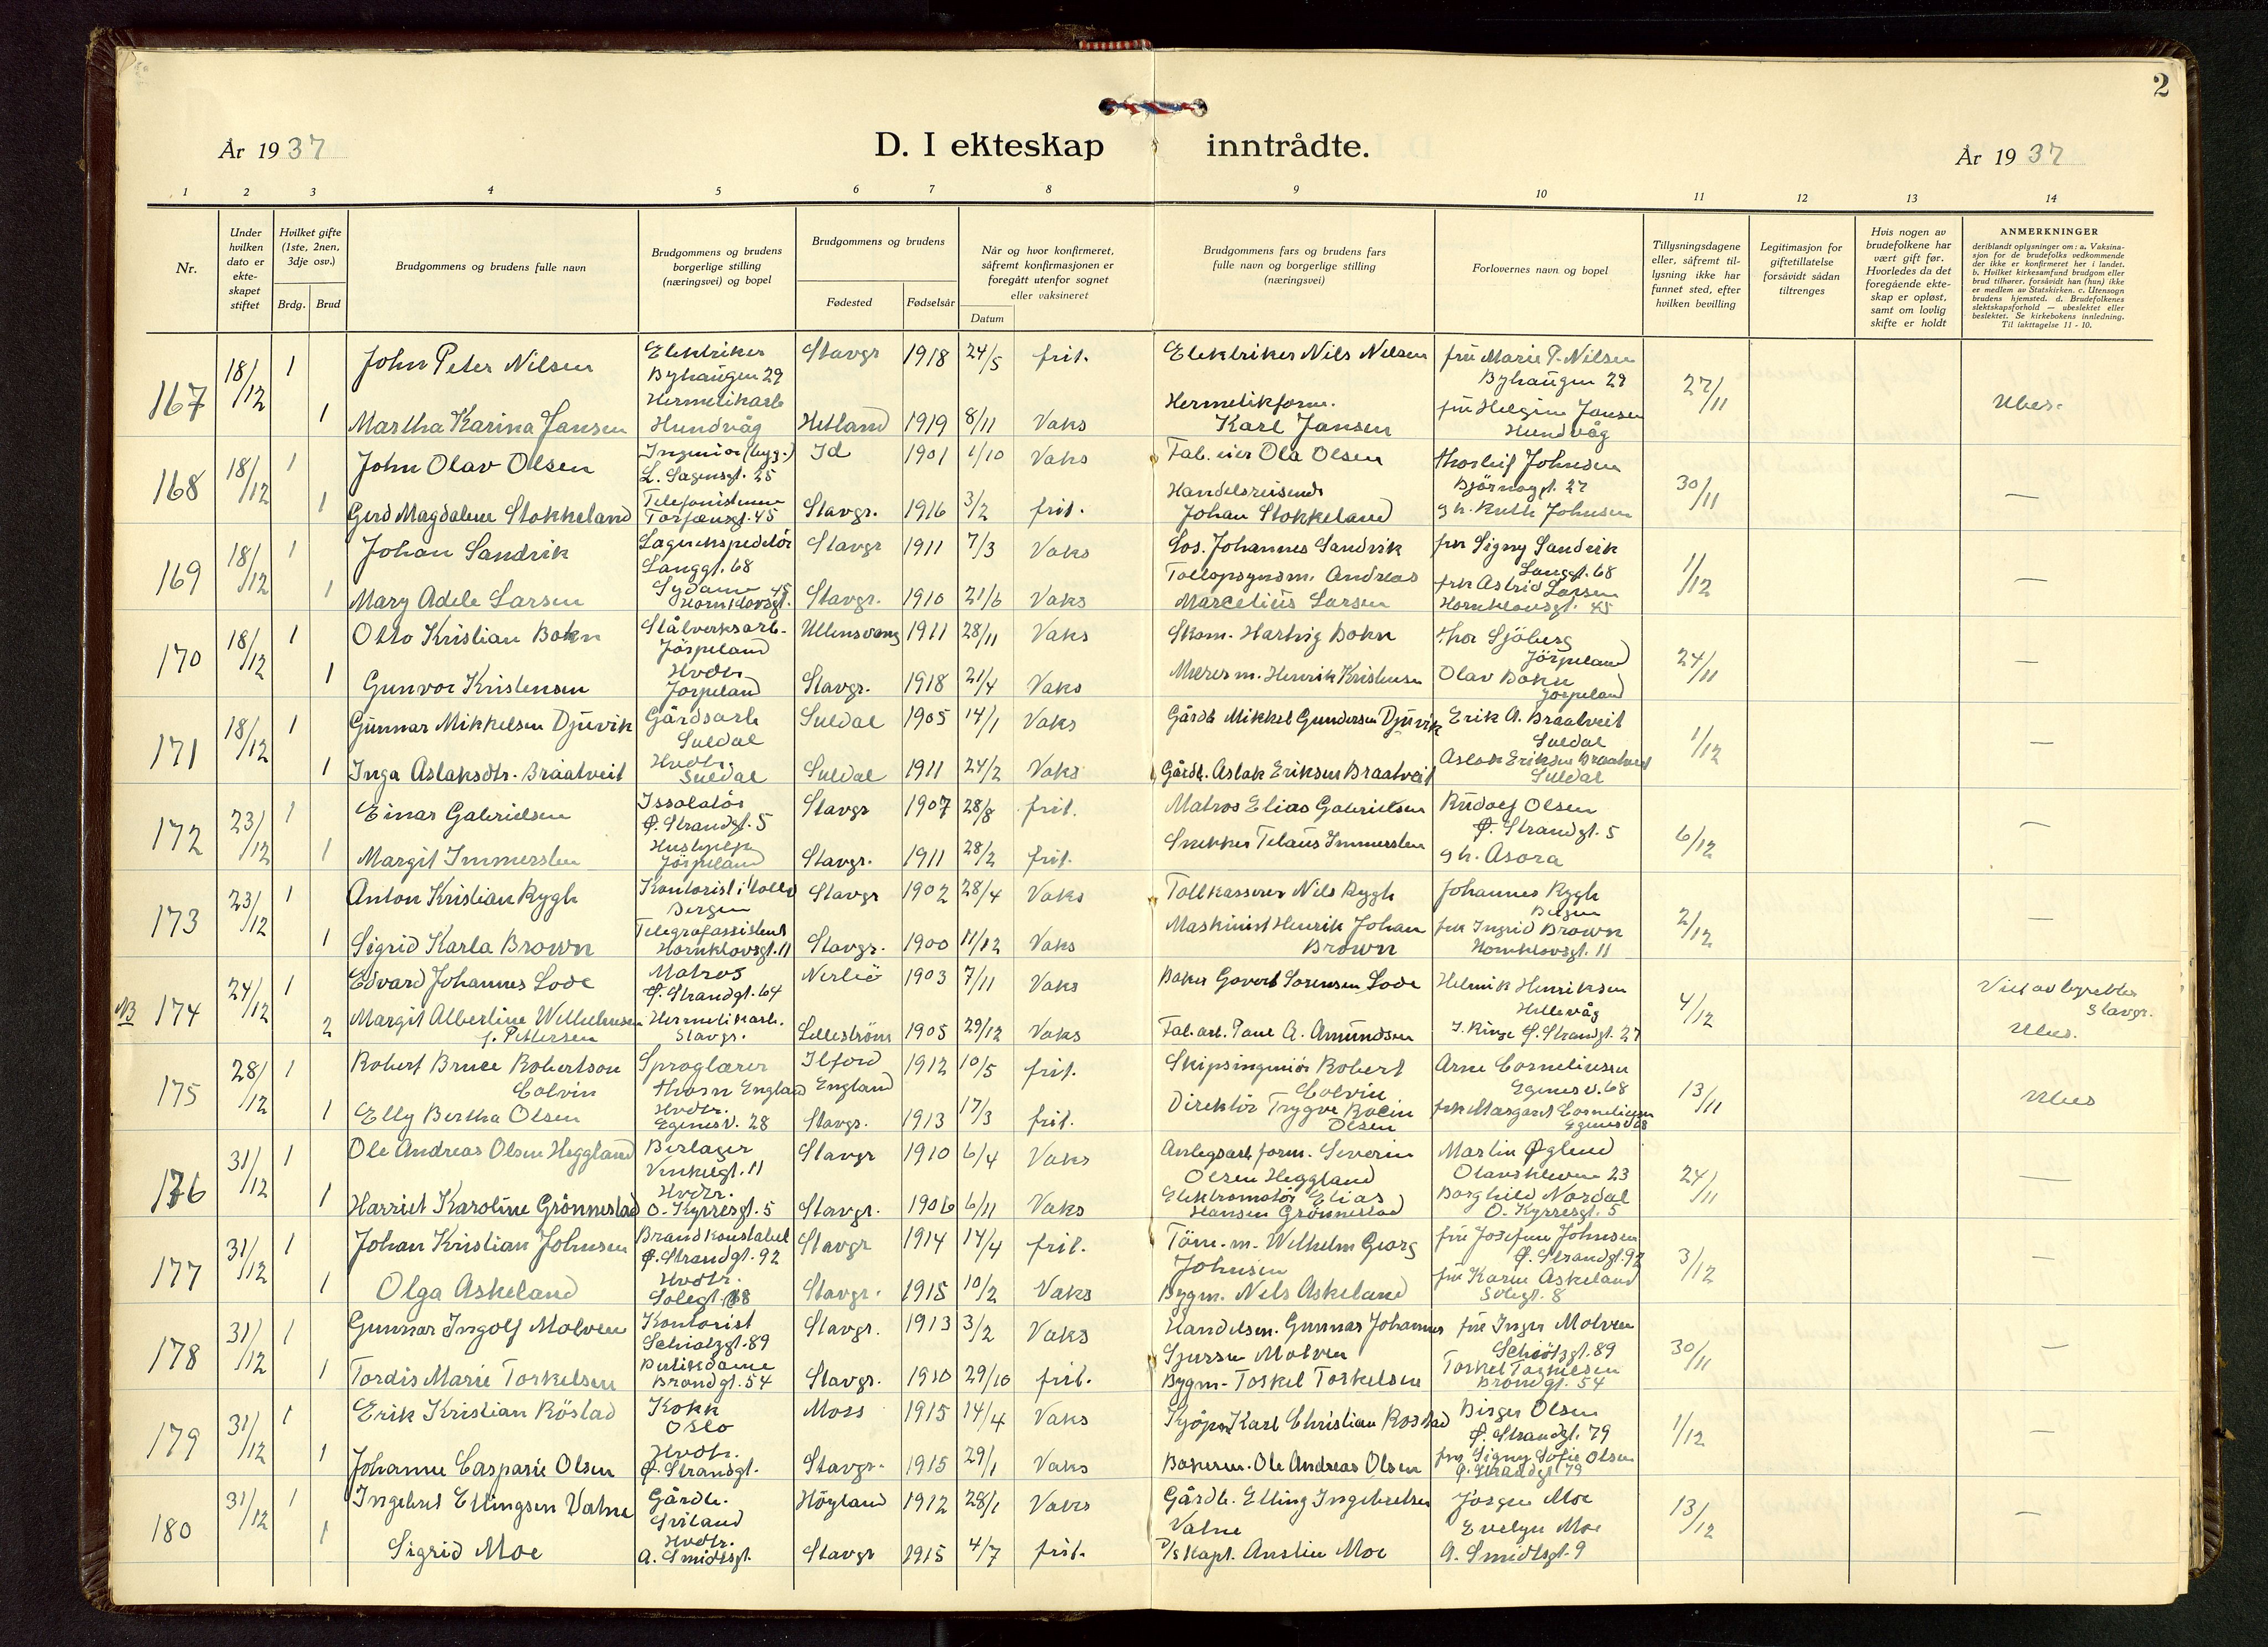 2
År 1937
D. I ekteskap inntrådte.
År 1937
1 2 3 4 5 6 7 8 9 10 11 12 13 14
Nr.
Under hvilken dato er ekte-skapet stiftet
Hvilket gifte (1ste, 2nen, 3dje osv.)
Brdg. Brud
Brudgommens og brudens fulle navn
Brudgommens og brudens borgerlige stilling (næringsvei) og bopel
Brudgommens og brudens
Fødested Fødselsår
Når og hvor konfirmeret, såfremt konfirmasjonen er foregått utenfor sognet eller vaksineret
Datum
Brudgommens fars og brudens fars fulle navn og borgerlige stilling (næringsvei)
Forlovernes navn og bopel
Tillysningsdagene eller, såfremt til-lysning ikke har funnet sted, efter hvilken bevilling
Legitimasjon for giftetillatelse forsåvidt sådan tiltrenges
Hvis nogen av brudefolkene har vært gift før. Hvorledes da det foregående ekte-skap er opløst, samt om lovlig skifte er holdt
ANMERKNINGER
deriblandt oplysninger om: a. Vaksina-sjon for de brudefolks vedkommende der ikke er konfirmeret her i landet. b. Hvilket kirkesamfund brudgom eller brud tilhører, forsåvidt han (hun) ikke er medlem av Statskirken. c. Utensogn brudens hjemsted. d. Brudefolkenes slektskapsforhold — ubeslektet eller beslektet. Se kirkebokens innledning. Til iakttagelse 11 - 10.
167 18/12 1 John Peter Nilsen Elektriker Byhaugen 29 Stavgr 1918 24/5 frit. Elektriker Nils Nilsen fru Marie P. Nilsen Byhaugen 29 27/11 Ubes.
1 Martha Karina Jansen Hermetikarb Hundvåg Hetland 1919 8/11 Vaks Hermetikform. Karl Jansen fru Helgine Jansen Hundvåg
168 18/12 1 John Olav Olsen Ingeniør (byg.) L. Sagensgt. 25 Id 1901 1/10 Vaks Fab. eier Ola Olsen Thorleif Johnsen Bjørnsgt. 27 30/11 —
1 Gerd Magdalene Stokkeland Telefonistinne Torfæusgt. 45 Stavgr. 1916 3/2 frit. Handelsreisende Johan Stokkeland g h. Ruth Johnsen
169 18/12 1 Johan Sandvik Lagerekspeditør Langgt. 68 Stavgr 1911 7/3 Vaks Los. Johannes Sandvik frk Signy Sandvik Langgt. 68 1/12 —
1 Mary Adele Larsen Sydame Hornklovsgt. 45 Stavgr. 1910 21/6 Vaks Tollopsynsm. Andreas Marcelius Larsen frk Astrid Larsen Hornklovsgt. 45
170 18/12 1 Otto Kristian Bokn Stålverksarb. Jörpeland Ullensvang 1911 28/11 Vaks Skom. Hartvig Bokn Thor Sjöberg Jörpeland 24/11 —
1 Gunvor Kristensen Hvdtr Jörpeland Stavgr. 1918 21/4 Vaks Murerm. Henrik Kristensen Olav Bokn Jörpeland
171 18/12 1 Gunnar Mikkelsen Djuvik Gårdsarb Suldal Suldal 1905 14/1 Vaks Gårdb Mikkel Gundersen Djuvik Erik A. Braatveit Suldal 1/12 —
1 Inga Aslaksdtr. Braatveit Hvdtr. Suldal Suldal 1911 24/2 Vaks Gårdb. Aslak Eriksen Braatveit Aslak Eriksen Braatveit Suldal
172 23/12 1 Einar Gabrielsen Issolatör Ø. Strandgt. 5 Stavgr 1907 28/8 frit. Matros Elias Gabrielsen Rudolf Olsen Ø. Strandgt. 5 6/12 —
1 Margit Immerslen Hushjelp Jörpeland Stavgr. 1911 28/2 frit. Snekker Telaus Immerslen g h. Asora
173 23/12 1 Anton Kristian Rygh Kontorist i Tollv Bergen Stavgr 1902 28/4 Vaks Tollkasserer Nils Rygh Johannes Rygh Bergen 2/12 —
1 Sigrid Karla Brown Telegrafassistent Hornklovsgt. 11 Stavgr. 1900 11/12 Vaks Maskinist Henrik Johan Brown frk Ingrid Brown Hornklovsgt. 11
NB 174 24/12 1 Edvard Johannes Lode Matros Ø. Strandgt. 64 Nerbö 1903 7/11 Vaks Baker Govert Sorensen Lode Helmik Henriksen Hillevåg 4/12 Viet av byretten Stavgr.
2 Margit Albertine Wilhelmsen f. Pettersen Hermetikarb. Stavgr. Lilleström 1905 29/12 Vaks Fab. arb. Paul A. Amundsen J. Ringe Ø. Strandgt. 27 Ubes.
175 28/12 1 Robert Bruce Robertson Colvin Sproglærer Thorn England Ilford England 1912 10/5 frit. Skipsingeniör Robert Colvin Arne Corneliussen Egenesv. 68 13/11 Ubes
1 Elly Bertha Olsen Hvdtr. Egenesv. 28 Stavgr. 1913 17/3 frit. Direktör Trygve Olsen frk Margaret Corneliussen Egenesv 68
176 31/12 1 Ole Andreas Olsen Heggland Berlager Vinkelgt. 11 Stavgr 1910 6/4 Vaks Anlegsarb. form. Severin Olsen Heggland Martin Øglend Olavskleven 23 24/11 —
1 Harriet Karoline Grönnestad Hvdtr. O. Kyrresgt. 5 Stavgr. 1906 6/11 Vaks Elektromotör Elias Hansen Grönnestad Borghild Nordal O. Kyrresgt. 5
177 31/12 1 Johan Kristian Johnsen Brandkonstabel Ø. Strandgt. 92 Stavgr 1914 14/4 frit. Töm. m. Wilhelm Georg Johnsen fru Josefine Johnsen Ø. Strandgt. 92 3/12 —
1 Olga Askeland Hvdtr. Solegt. 8 Stavgr. 1915 10/2 Vaks Bygm. Nils Askeland fru Karen Askeland Solegt. 8
178 31/12 1 Gunnar Ingolf Molven Kontorist Schiötzgt. 89 Stavgr. 1913 3/2 Vaks Handelsm. Gunnar Johannes Sjursen Molven fru Inger Molven Schiötzgt. 89 30/11 —
1 Tordis Marie Torkelsen Butikdame Bröndgt. 54 Stavgr. 1910 29/10 frit. Bygm. Torkel Torkelsen Torkel Torkelsen Bröndgt. 54
179 31/12 1 Erik Kristian Röstad Kokk Oslo Moss 1915 14/4 Vaks Kjöpm Karl Christian Rostad Birger Olsen Ø. Strandgt. 79 1/12 —
1 Johanne Casparie Olsen Hvdtr. Ø. Strandgt. Stavgr. 1915 29/1 Vaks Bakerm. Ole Andreas Olsen fru Signy Sofie Olsen Ø. Strandgt 79
180 31/12 1 Ingebret Ellingsen Vatne Gårdb. Sviland Höyland 1912 28/1 Vaks Gårdb. Elling Ingebretsen Vatne Jörgen Moe 13/12 —
1 Sigrid Moe Hvdtr. A. Smidtsgt. Stavgr 1915 4/7 frit. D/s Kapt. Anstin Moe Evelyn Moe A. Smidtsgt. 9